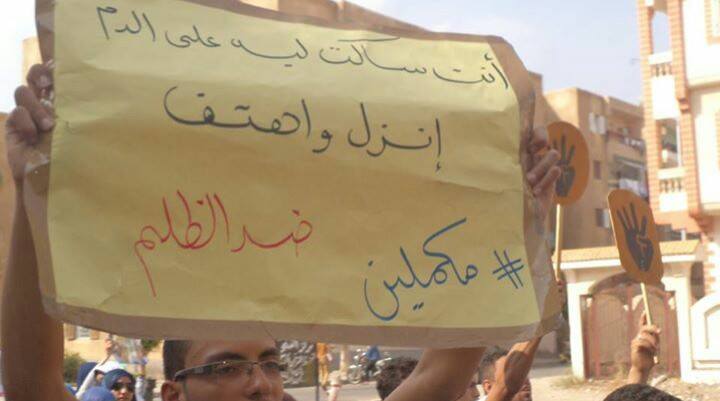 أنت ساكت ليه على الدم
إنزل واهتف
ضد الظلم
#مكملين